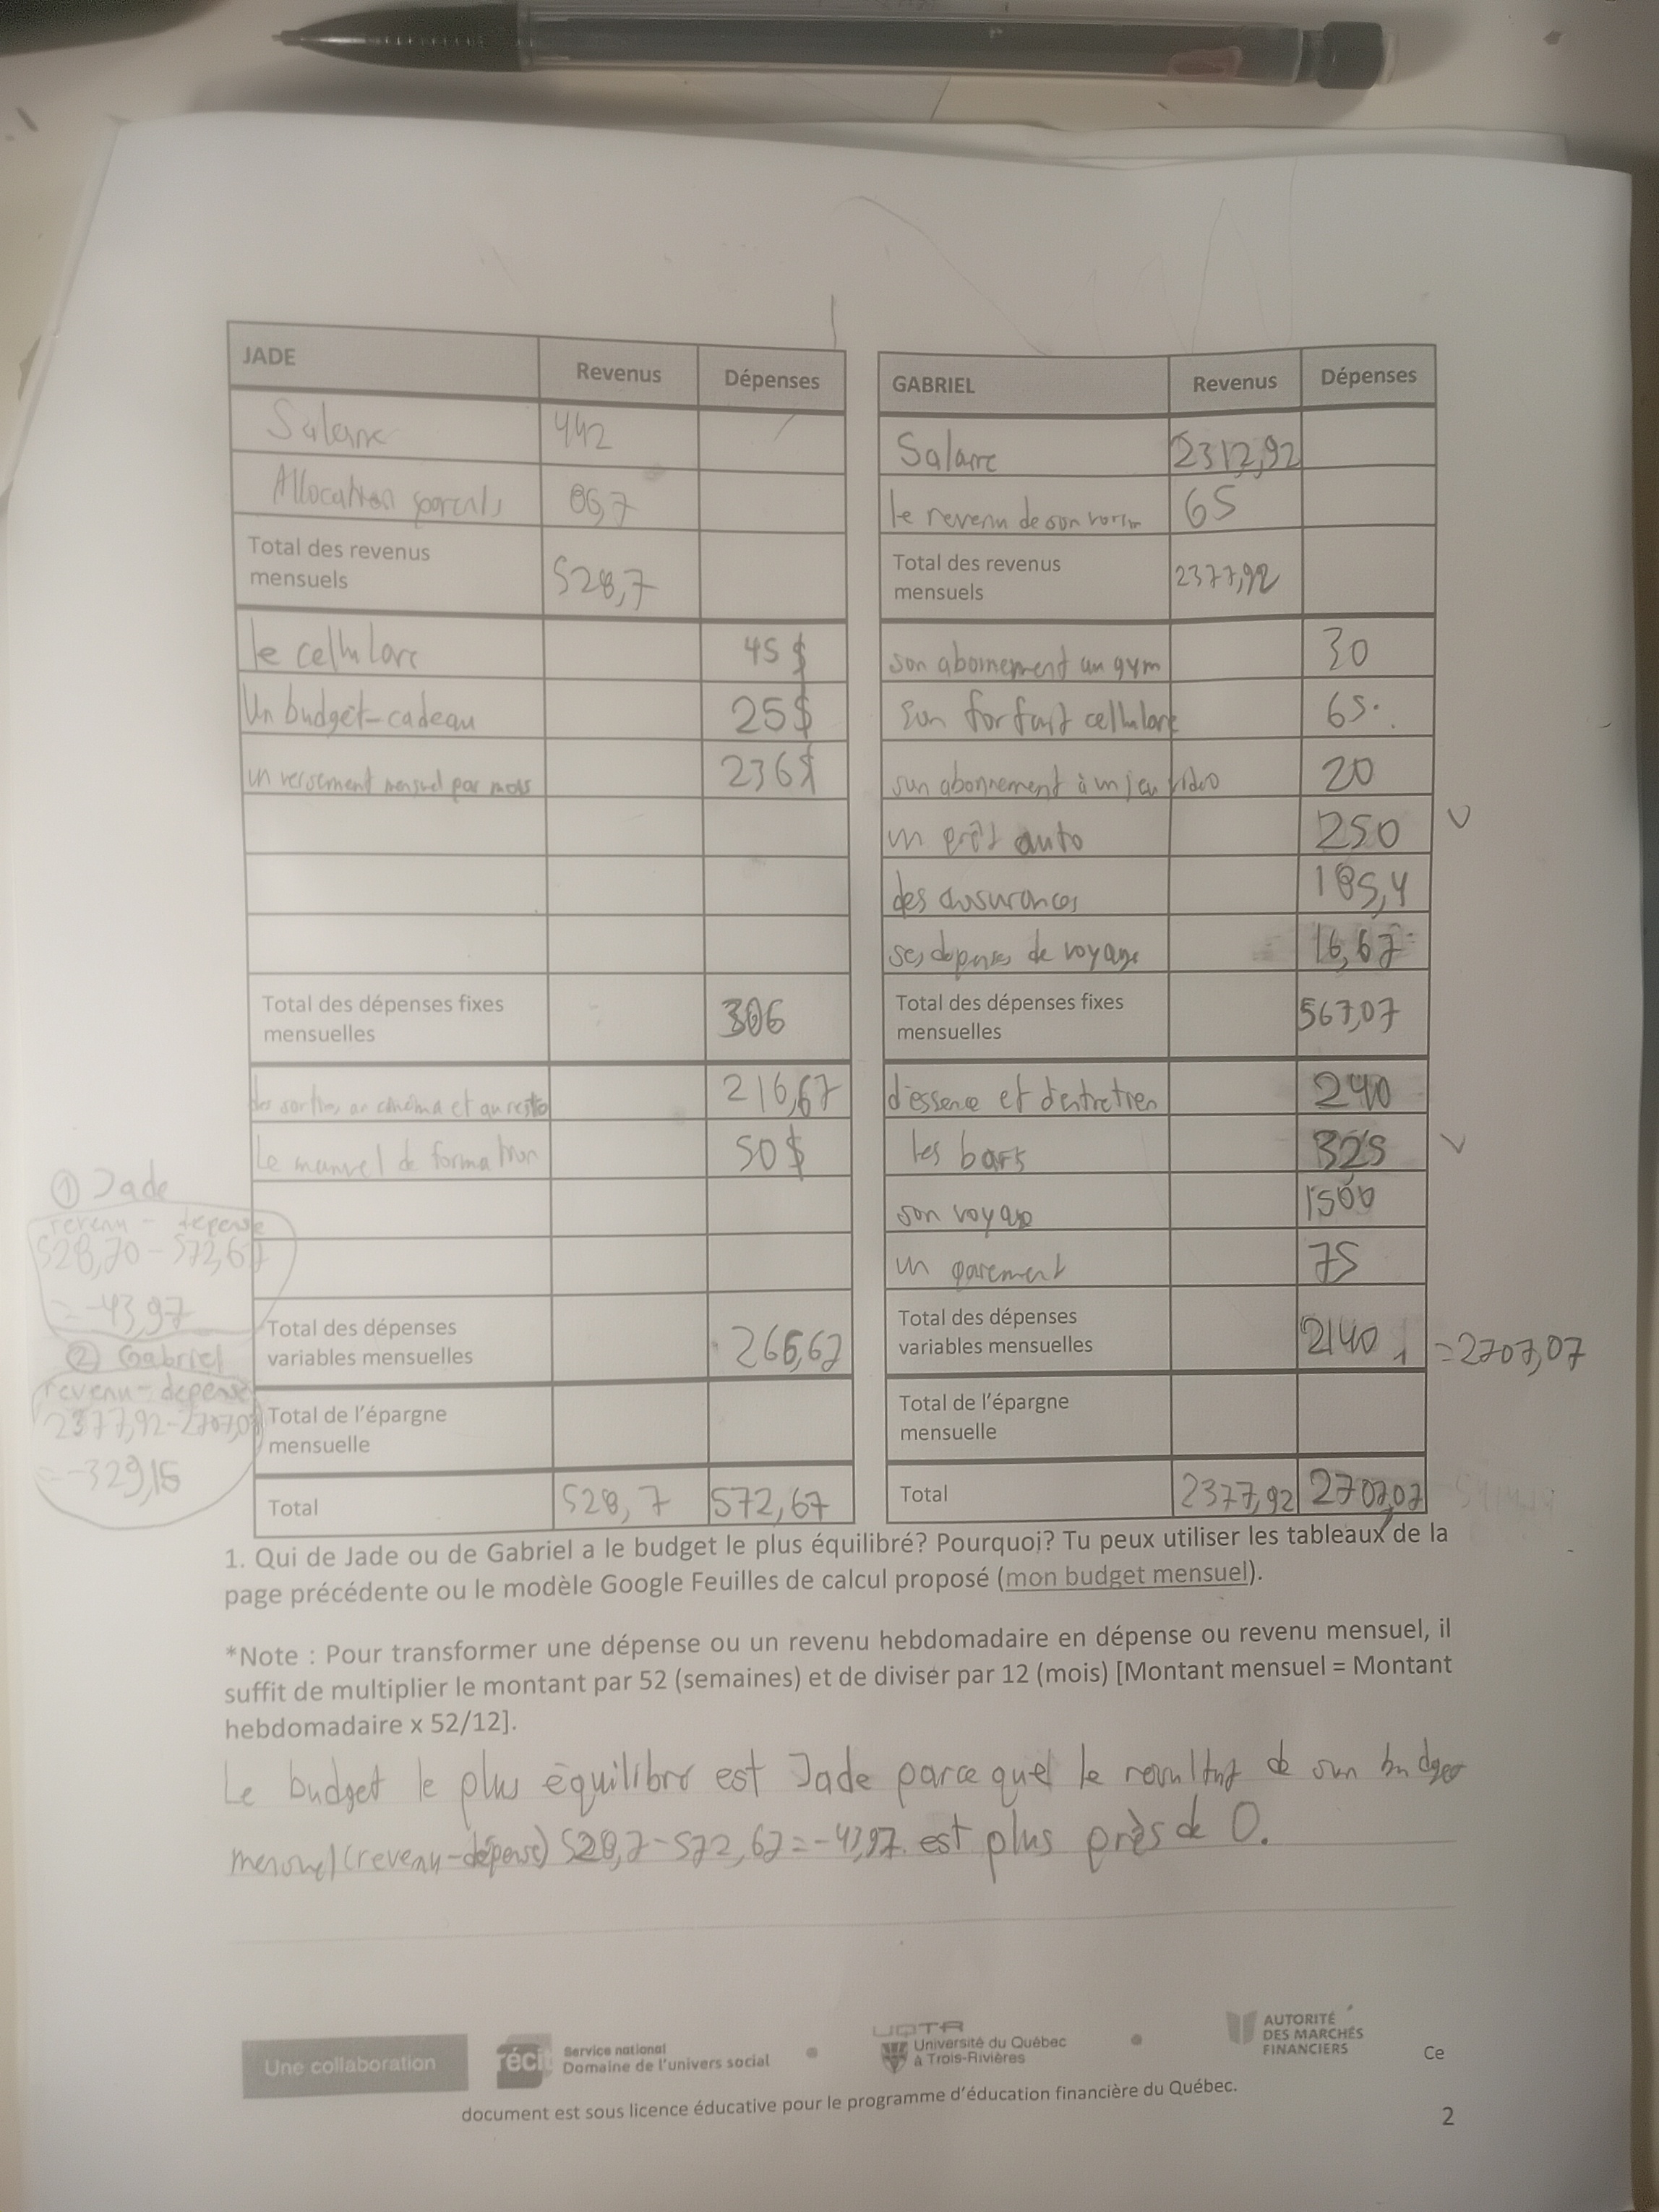 JADE Revenus Dépenses
Salaire 442
Allocation parents 86,7
Total des revenus mensuels 528,7
le cellulare 45 $
Un budget-cadeau 25$
un versement mensuel par mois 236$
Total des dépenses fixes mensuelles 306
des sorties au cinéma et au resto 216,67
Le manuel de formation 50$
Total des dépenses variables mensuelles 266,67
Total de l'épargne mensuelle
Total 528,7 572,67
GABRIEL Revenus Dépenses
Salaire 2312,92
le revenu de son 65
Total des revenus mensuels 2377,92
son abonnement au gym 30
Son forfait cellulare 65
son abonnement à un jeu vidéo 20
un prêt auto 250
des assurances 185,4
ses dépenses de voyage 16,67
Total des dépenses fixes mensuelles 567,07
d'essence et d'entretien 240
les bars 325
son voyage 1500
un 75
Total des dépenses variables mensuelles 2140 =2707,07
Total de l'épargne mensuelle
Total 2377,92 2707,07
① Jade
revenu - depense
528,70-572,67
=-43,97
② Gabriel
revenu-depense
2377,92-2707,07
=-329,15
1. Qui de Jade ou de Gabriel a le budget le plus équilibré? Pourquoi? Tu peux utiliser les tableaux de la
page précédente ou le modèle Google Feuilles de calcul proposé (mon budget mensuel).
*Note : Pour transformer une dépense ou un revenu hebdomadaire en dépense ou revenu mensuel, il
suffit de multiplier le montant par 52 (semaines) et de diviser par 12 (mois) [Montant mensuel = Montant
hebdomadaire x 52/12].
Le budget le plus équilibré est Jade parce quel le resultat de son budget
mensuel (revenu-dépense) 528,7-572,67=-43,97. est plus près de 0.
Une collaboration
réci
Service national
Domaine de l'univers social
UQTR
Université du Québec
à Trois-Rivières
AUTORITÉ
DES MARCHÉS
FINANCIERS
Ce
document est sous licence éducative pour le programme d'éducation financière du Québec.
2